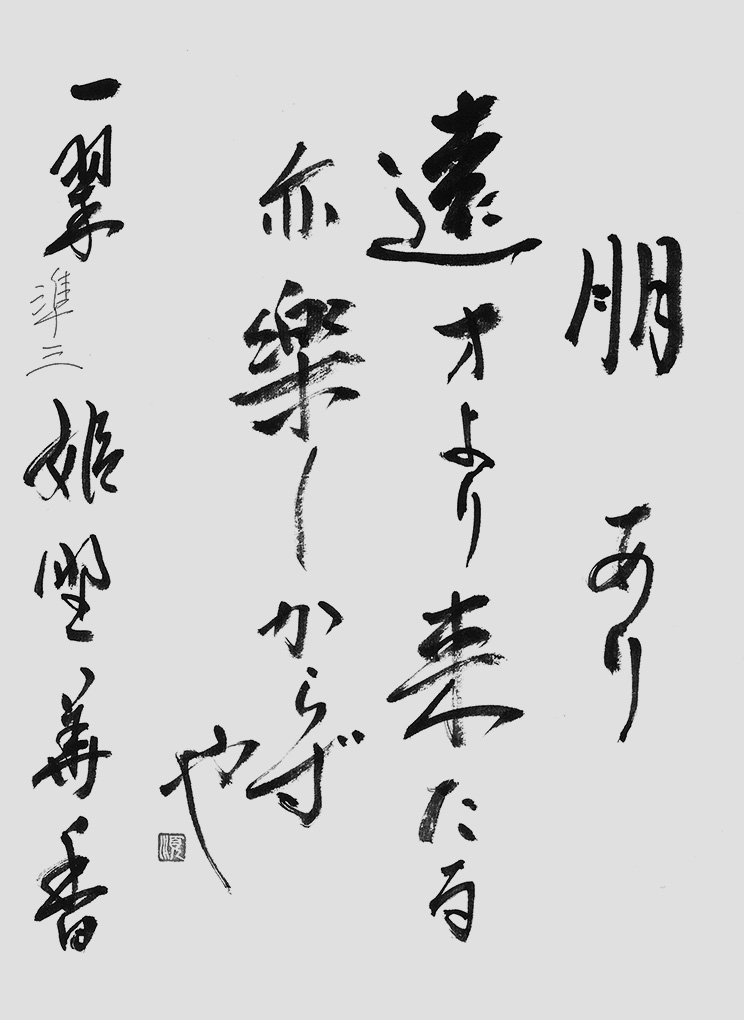 朋あり
遠方より来たる
亦楽しからず
や
一翠 準三 姫野華香